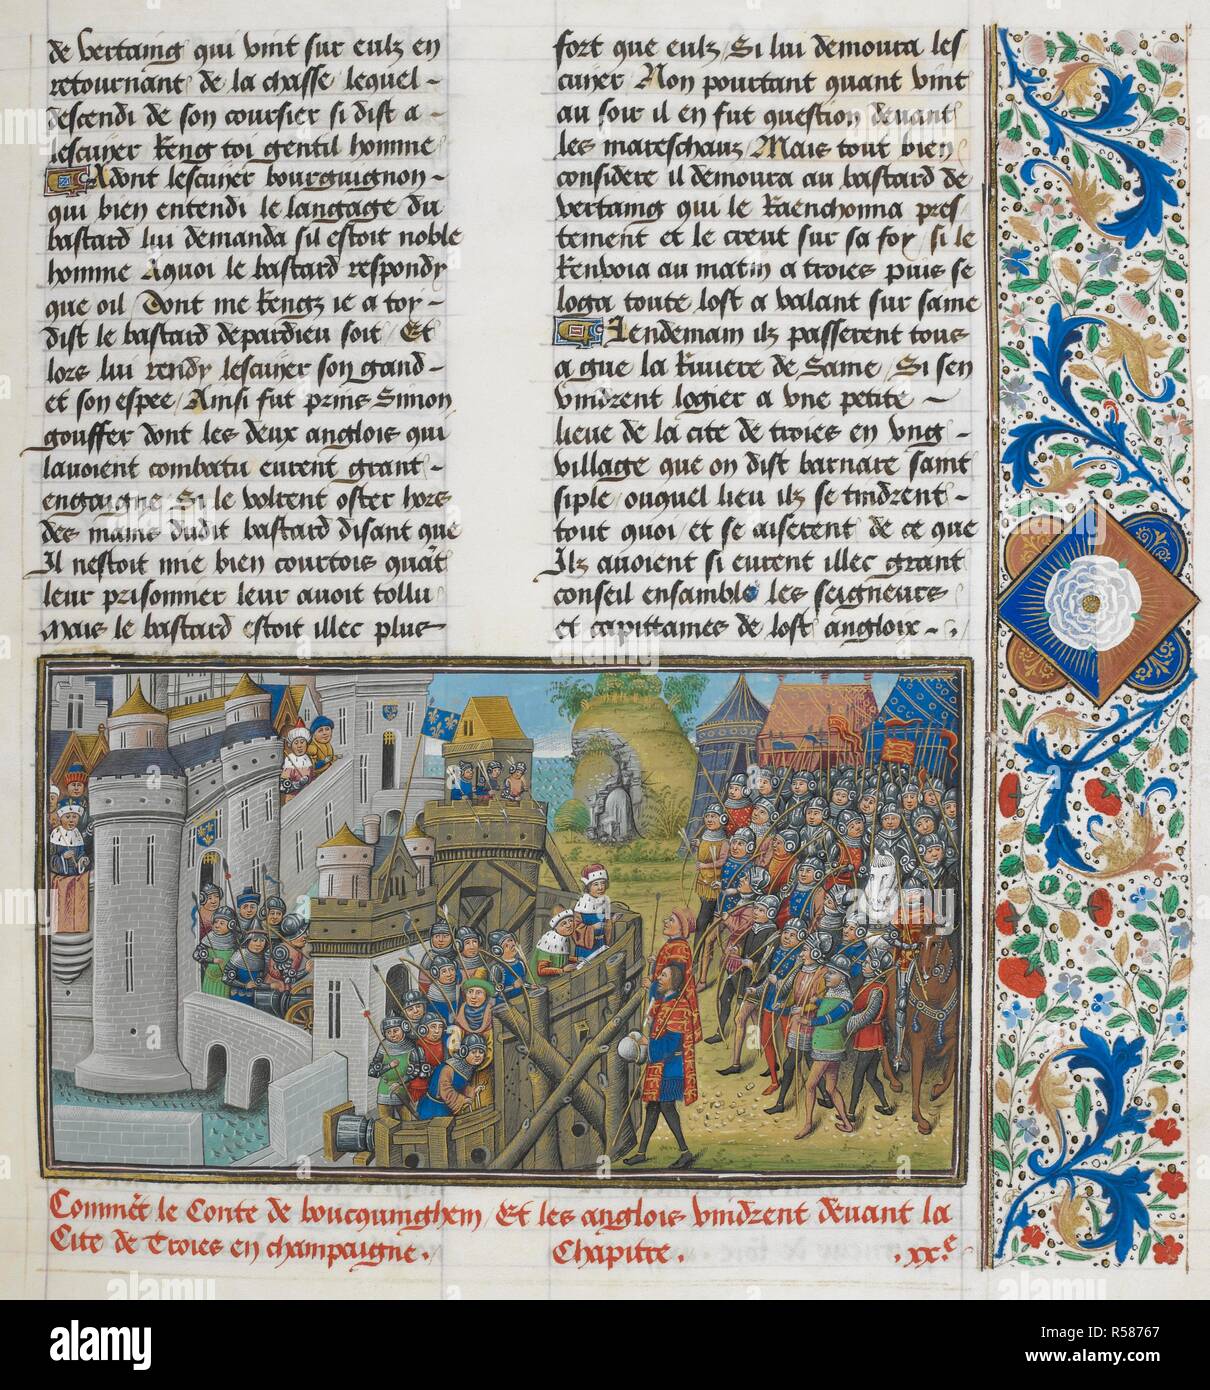 de vertaing qui vint sur eulz en
retournant de la chasse lequel
descendi de son coursier si dist a
lescuier Reng toi gentil homme
Adont lescuier bourguignon
qui bien entendi le langage du
bastard lui demanda sil estoit noble
homme Aquoi le bastard respondy
que oil / Dont me Rengz ie a toy
dist le bastard depardieu soit / Et
lors lui rendy lescuier son gand
et son espee / Ainsi fut prins Simon
gouffer dont les deux anglois qui
lauoient combatu eurent grant
engaigne / Si le volrent oster hors
des mains dudit bastard disant que
Il nestoit mie bien courtois quāt
leur prisonnier leur auoit tollu
Mais le bastard estoit illec plus
fort que eulz / Si lui demoura les
cuier / Non pourtant quant vint
au soir il en fut question deuant
les mareschaux / Mais tout bien
considere il demoura au bastard de
vertaing qui le Raenchonna pres
tement et le creut sur sa foy / si le
Renvoia au matin a troies puis se
loga toute lost a valant sur saine
Lendemain ilz passerent tous
a gue la Riuiere de Saine / Si sen
vindrent logier a vne petite
lieue de la cite de troies en vng
village que on dist barnare saint
siple / ouquel lieu ilz se tindrent
tout quoi / et se aiserent de ce que
Ilz auoient si eurent illec grant
conseil ensamble les seigneurs
et capittaines de lost anglois
Commēt le Conte de boucquinghem / Et les anglois vindrent deuant la
Cite de Troies en champaigne. Chapitre. .xx.e
alamy
Image ID: R58767
www.alamy.com